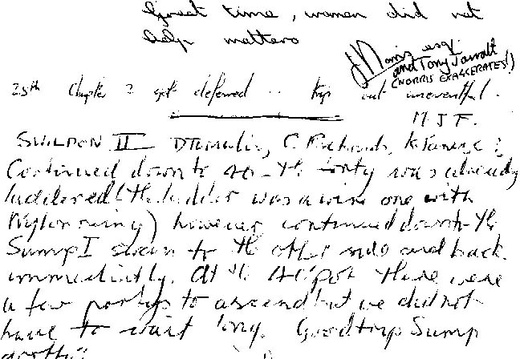 Great time, women did not
help matters
J Norris esq.
and Tony Jarratt
(NORRIS EXAGGERATES!)
25th Chapter 2 got deferred .. trip out uneventful.
M.J.F.
SWILDON II D Tomalin, C. Richards, K.
Continued down to 40 - the forty was already
laddered (the ladder was a wire one with
Nylon) however continued down the
Sump I swam to the other side and back
immediately. At the 40 pot there were
a few partys to ascend but we did not
have to wait long. Good trip Sump